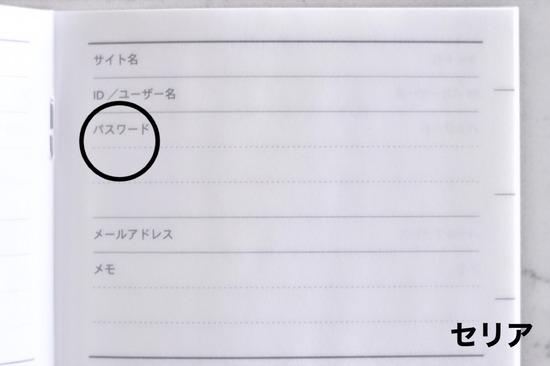 サイト名
ID／ユーザー名
パスワード
メールアドレス
メモ
セリア